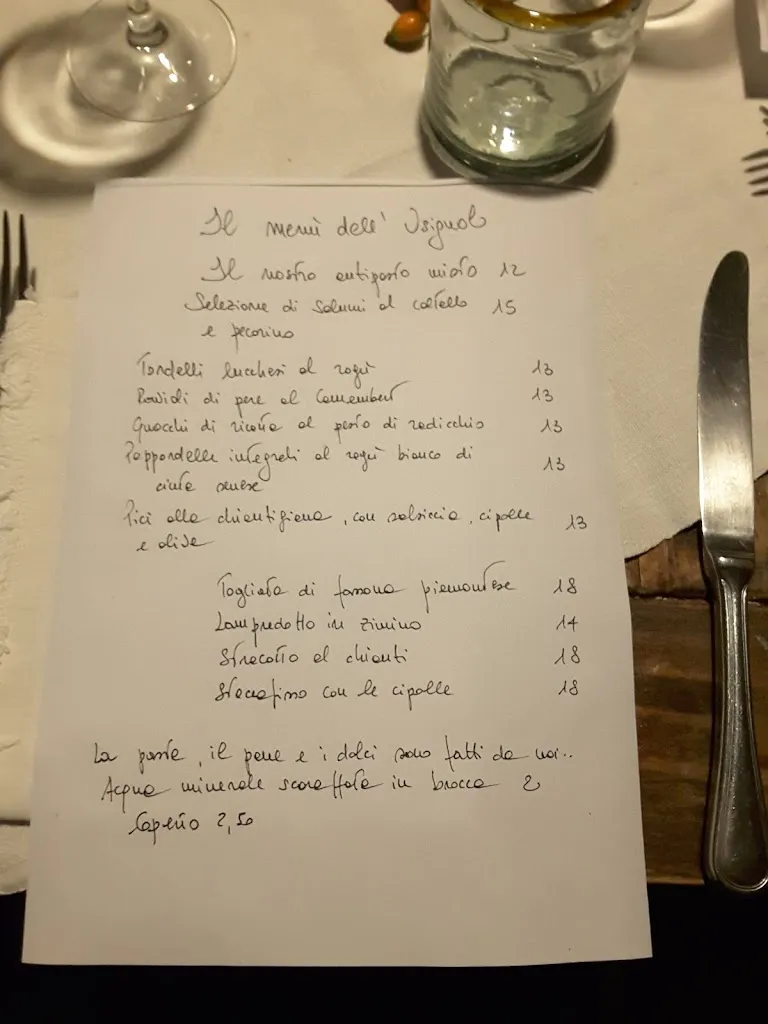 Il menù dell' Usignolo
Il nostro antipasto misto 12
Selezione di salumi al coltello 15
e pecorino
Tordelli lucchesi al ragù 13
Ravioli di pere al Camembert 13
Gnocchi di ricotta al pesto di radicchio 13
Pappardelle integrali al ragù bianco di 13
cinta senese
Pici alla chiantigiana, con salsiccia, cipolle 13
e olive
Tagliata di fassona piemontese 18
Lampredotto in zimino 14
Stracotto al chianti 18
Stoccafisso con le cipolle 18
La pasta, il pane e i dolci sono fatti da noi..
Acqua minerale scaraffata in brocca 2
Coperto 2,50